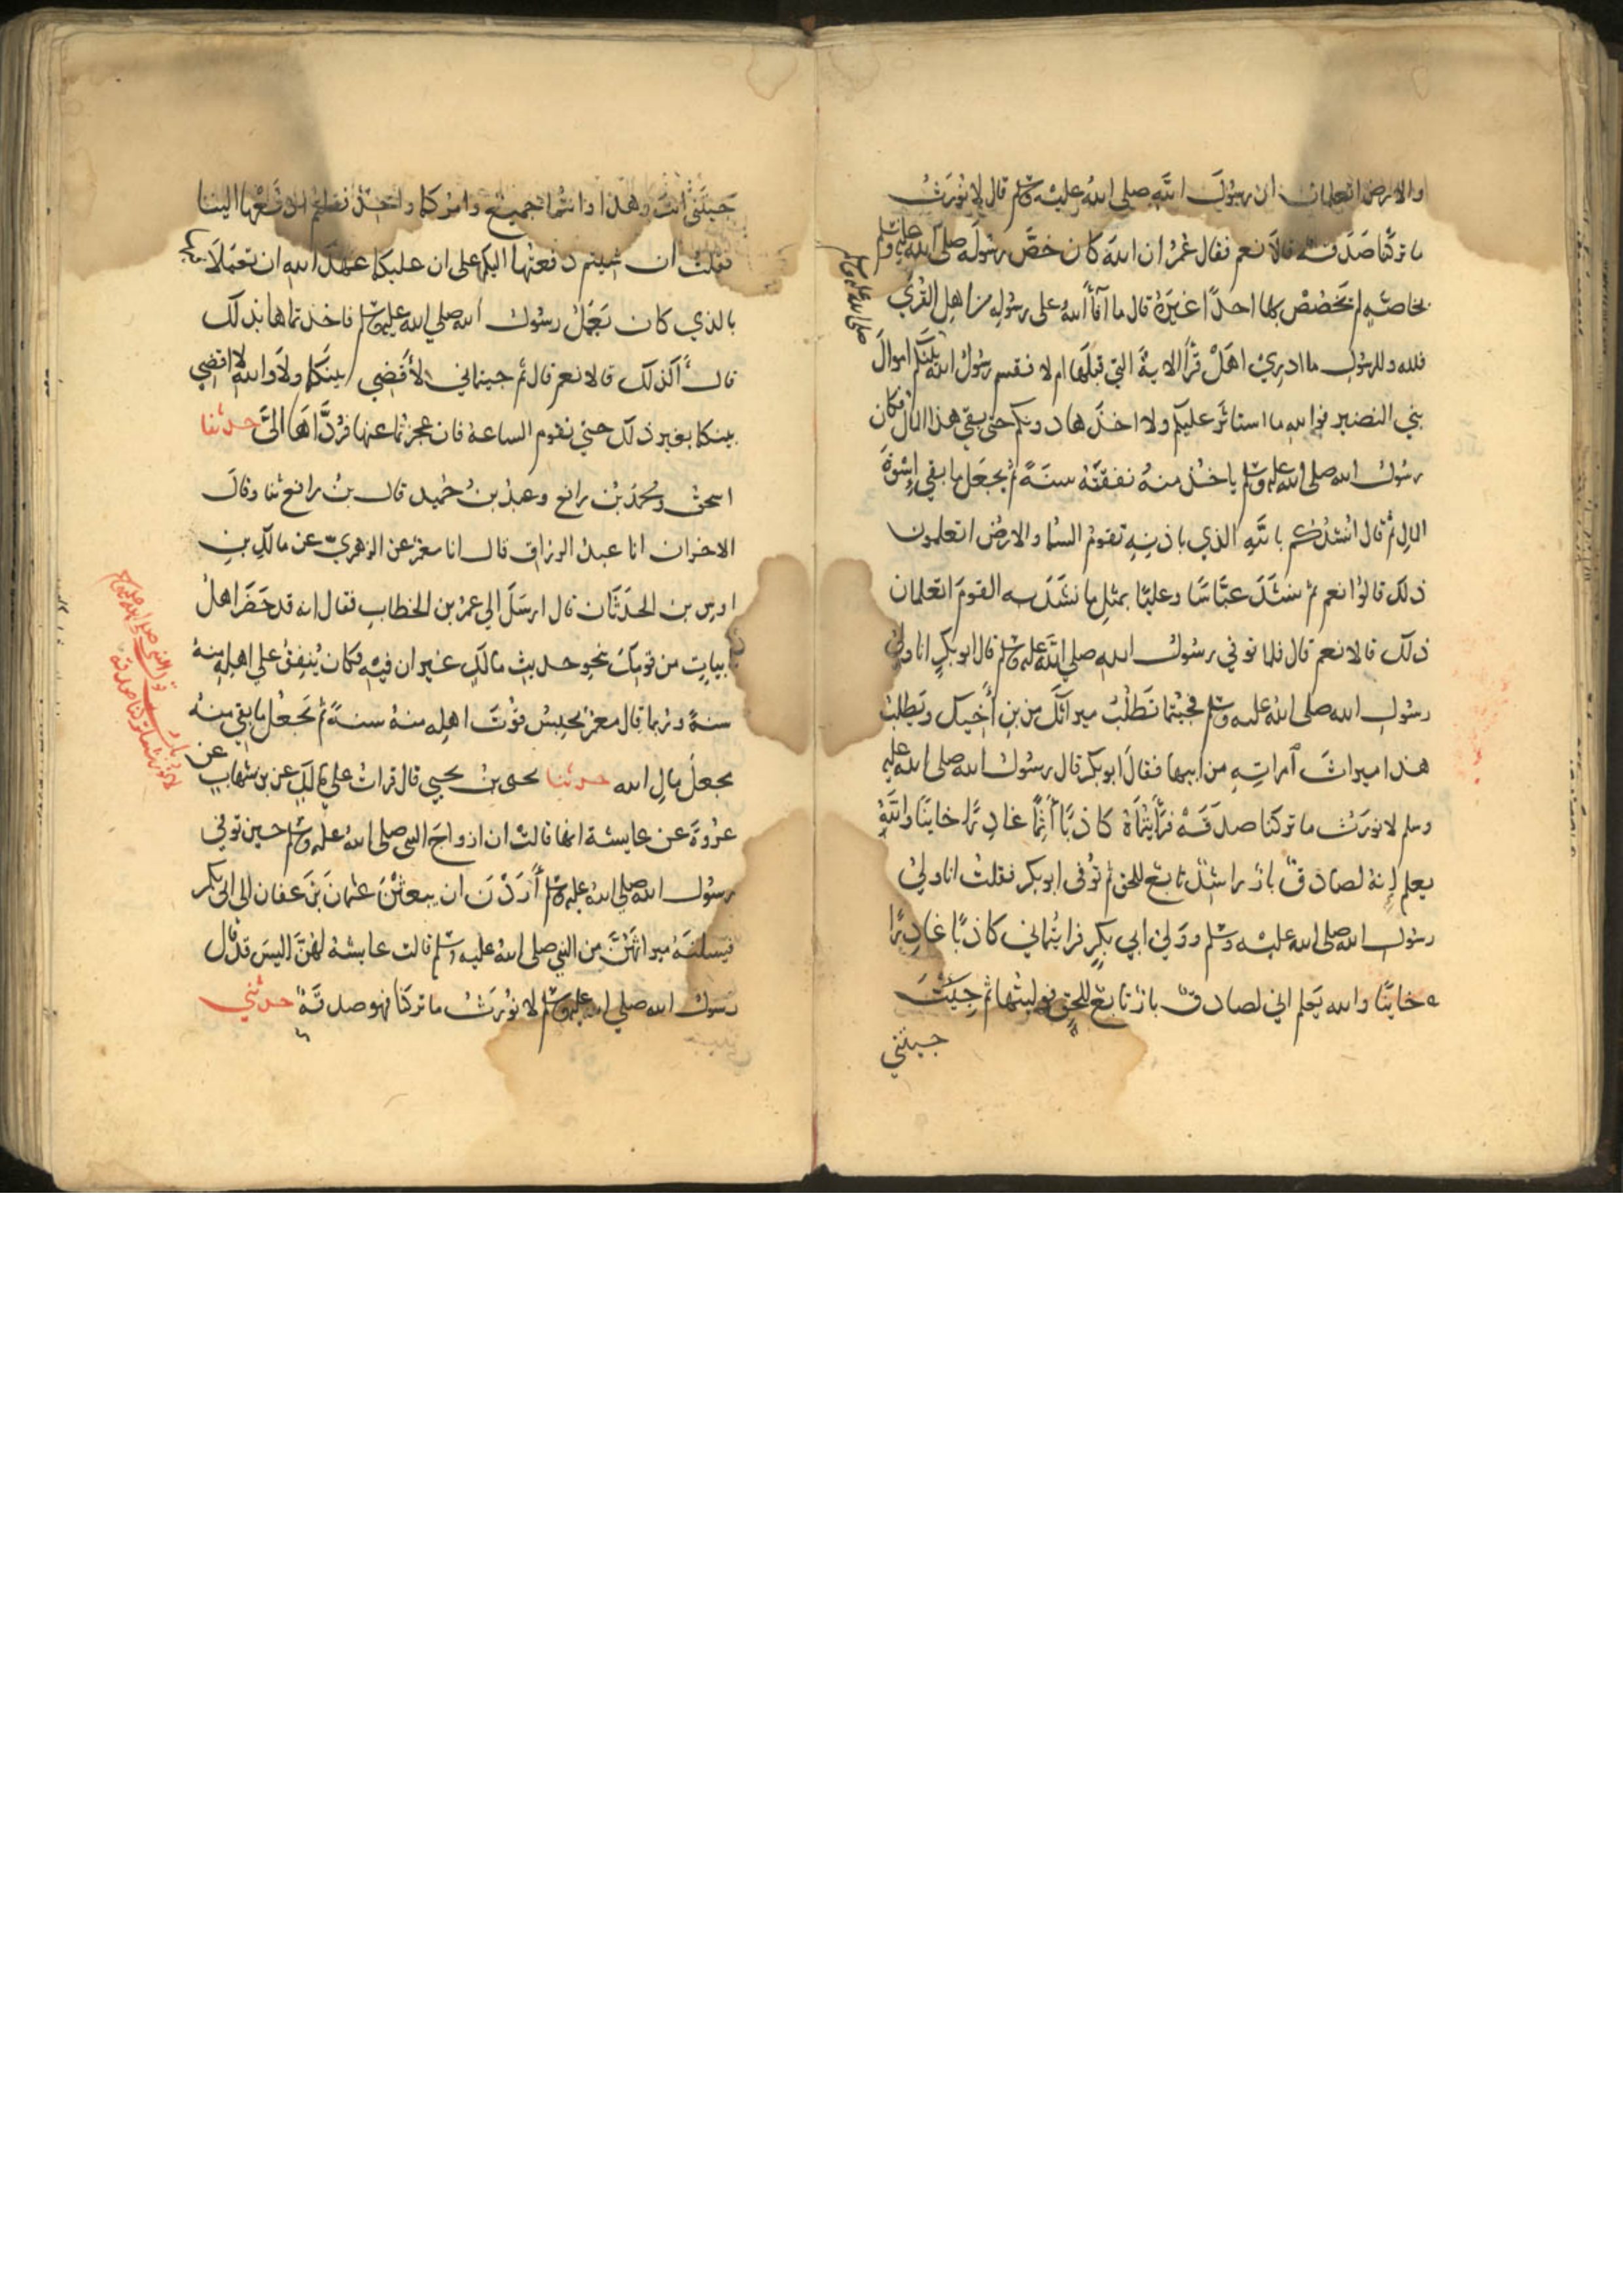 والارض اتعلمان ان رسولَ الله صلى الله عليه وسلم قال لا نُورَثُ
ما تركنا صَدَقة قالا نعم فقال عُمَرُ ان الله كان خصَّ رسولَه صلى الله عليه وسلم
بخاصّةٍ لم يَخصُصْ بها احدًا غيَرهُ قال ما آفأ اللهُ على رسولِهِ من اهلِ القُرَي
فلله وللرسُولِ ما ادرِيْ اهَلْ قَرأَ الايةَ التي قبلَها ام لا فقسم رسُولُ الله بَيْنَكم اموالَ
صلى الله عليه وسلم
بني النضير فوالله ما استاثَر عليكم ولا اخذَها دونكم حتى بقي هذا المال فكان
رسُولُ الله صلى الله عليه وسلم ياخُذُ منهُ نفقتَهُ سنَةً ثم يجعَل ما بقي اِسْوةَ
المالِ ثم قال انشُدُكم بالله الذي باذنِهِ تقومُ السماء والارضُ اتعلمون
ذلكَ قالوا نعم ثم نشَدَ عبَّاسًا وعليًّا بمثلِ ما نشَدَ به القومَ اتعلمان
ذلك قالا نعم قال فلما توفي رسُولُ الله صلى الله عليه وسلم قال ابوبكرٍ انا وليُّ
رسولِ الله صلى الله عليه وسلم فجئتما تَطلُبُ ميراثَكَ من بنِ أَخِيكَ ويَطلبُ
هذا ميراثَ آمراتِهِ من ابيها فقالَ ابوبكر قال رسُولُ الله صلى الله عليه
وسلم لا نورَثُ ما تركنا صدَقَهْ فرَأيتُماهُ كاذبًا آثِمًا غادِرًا خاينًا واللهُ
يعلم إنهُ لصادقٌ بارٌّ راشدٌ تابعٌ للحقِ ثم تُوفى ابوبكر فقلتُ انا وليُّ
رسُولِ الله صلى الله عليه وسلم ووَليّ ابي بكرٍ فرايتماني كاذبًا غادِرًا
خاينًا والله يَعلم اني لصادقٌ بارٌّ تابعٌ للحقِ فوليتُها ثم جِيتَ
جيتني
جيتَني انتَ وهذا وانتُما جميعٌ وامرُكما واحدٌ فقلتم ادفَعْها الينا
فقلتُ ان شيتم دفعتُها اليكم على ان عليكما عَهْدَ الله ان تعمَلا
بالذي كان يَعمَلُ رسُولُ الله صلى الله عليه وسلم فاخذتماها بذلك
قال أَكذلك قالا نعم قال ثم جيتماني لأَقضِي بينَكما ولا والله لا اقضي
بينكما بغيرِ ذلك حتي تقوم الساعة فان عجزتما عنها فرُدَّاهَا اليَّ حدثنا
اسحقُ ومحمدُ بنُ رافع وعبدُ بنُ حُميد قال بنُ رافع ثنا وقالَ
الاخران انا عبدُ الرزاق قال انا معمرٌ عن الزهريّ عن مالكِ بنِ
اوسِ بن الحدَثَان قال ارسَلَ الي عمرُ بن الخطابِ فقال انه قد حَضَر اهلُ
ابياتٍ من قومِكَ بنحوِ حديثِ مالكٍ غيرَ ان فيهِ فكان يُنفِقُ علي اهلِهِ منهُ
سنةً وربما قال معمرٌ يحبِسُ قوْتَ اهلِه منهُ سنةً ثم يَجعُل ما بقيَ منهُ
مجعلَ مالِ الله حدثنا يحيى بنُ يحيي قال قراتُ علي مالكٍ عن بن شهابٍ عن
عُروةَ عن عايشة انها قالتْ ان ازواجَ النبي صلى الله عليه وسلم حين توفي
رسُول الله صلى الله عليه وسلم أَرَدْنَ ان يبعثْنَ عثمانَ بنَ عفان الى ابي بكر
فيسلنَهُ ميراثَهُنَّ من النبي صلى الله عليه وسلم قالت عايشة لهُنَّ اليسَ قد قال
رسولُ الله صلى الله عليه وسلم لا نُورَثُ ما تركنا فهو صدقَةٌ حدثني
قول النبي صلى الله عليه وسلم
لا نورث ما تركنا صدقة